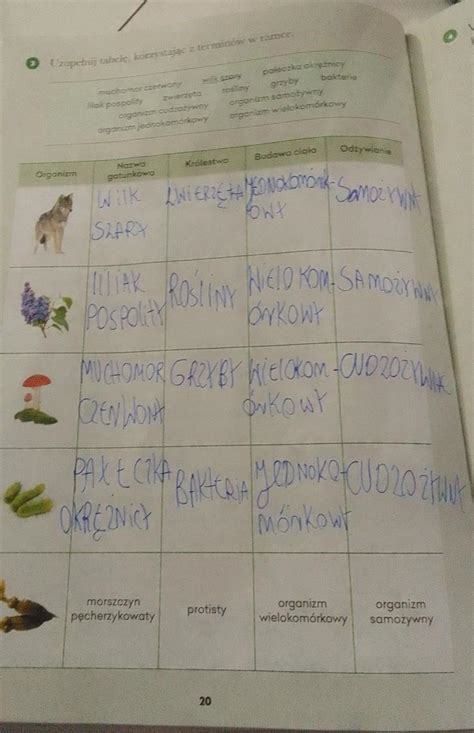 2 Uzupełnij tabelę, korzystając z terminów w ramce.
muchomor czerwony wilk szary pałeczka okrężnicy
lilak pospolity zwierzęta rośliny grzyby bakterie
organizm cudzożywny organizm samożywny
organizm jednokomórkowy organizm wielokomórkowy
Organizm Nazwa gatunkowa Królestwo Budowa ciała Odżywianie
WILK ZWIERZĘTA JEDNOKOMÓRK- SAMOŻYWNY
SZARY OWY
LILIAK ROŚLINY WIELOKOM- SAMOŻYWNY
POSPOLITY ÓRKOWY
MUCHOMOR GRZYBY WIELOKOM- CUDZOŻYWNY
CZERWONY ÓRKOWY
PAŁECZKA BAKTERIA JEDNOKO- CUDZOŻYWNY
OKRĘŻNICY MÓRKOWY
morszczyn protisty organizm organizm
pęcherzykowaty wielokomórkowy samożywny
20